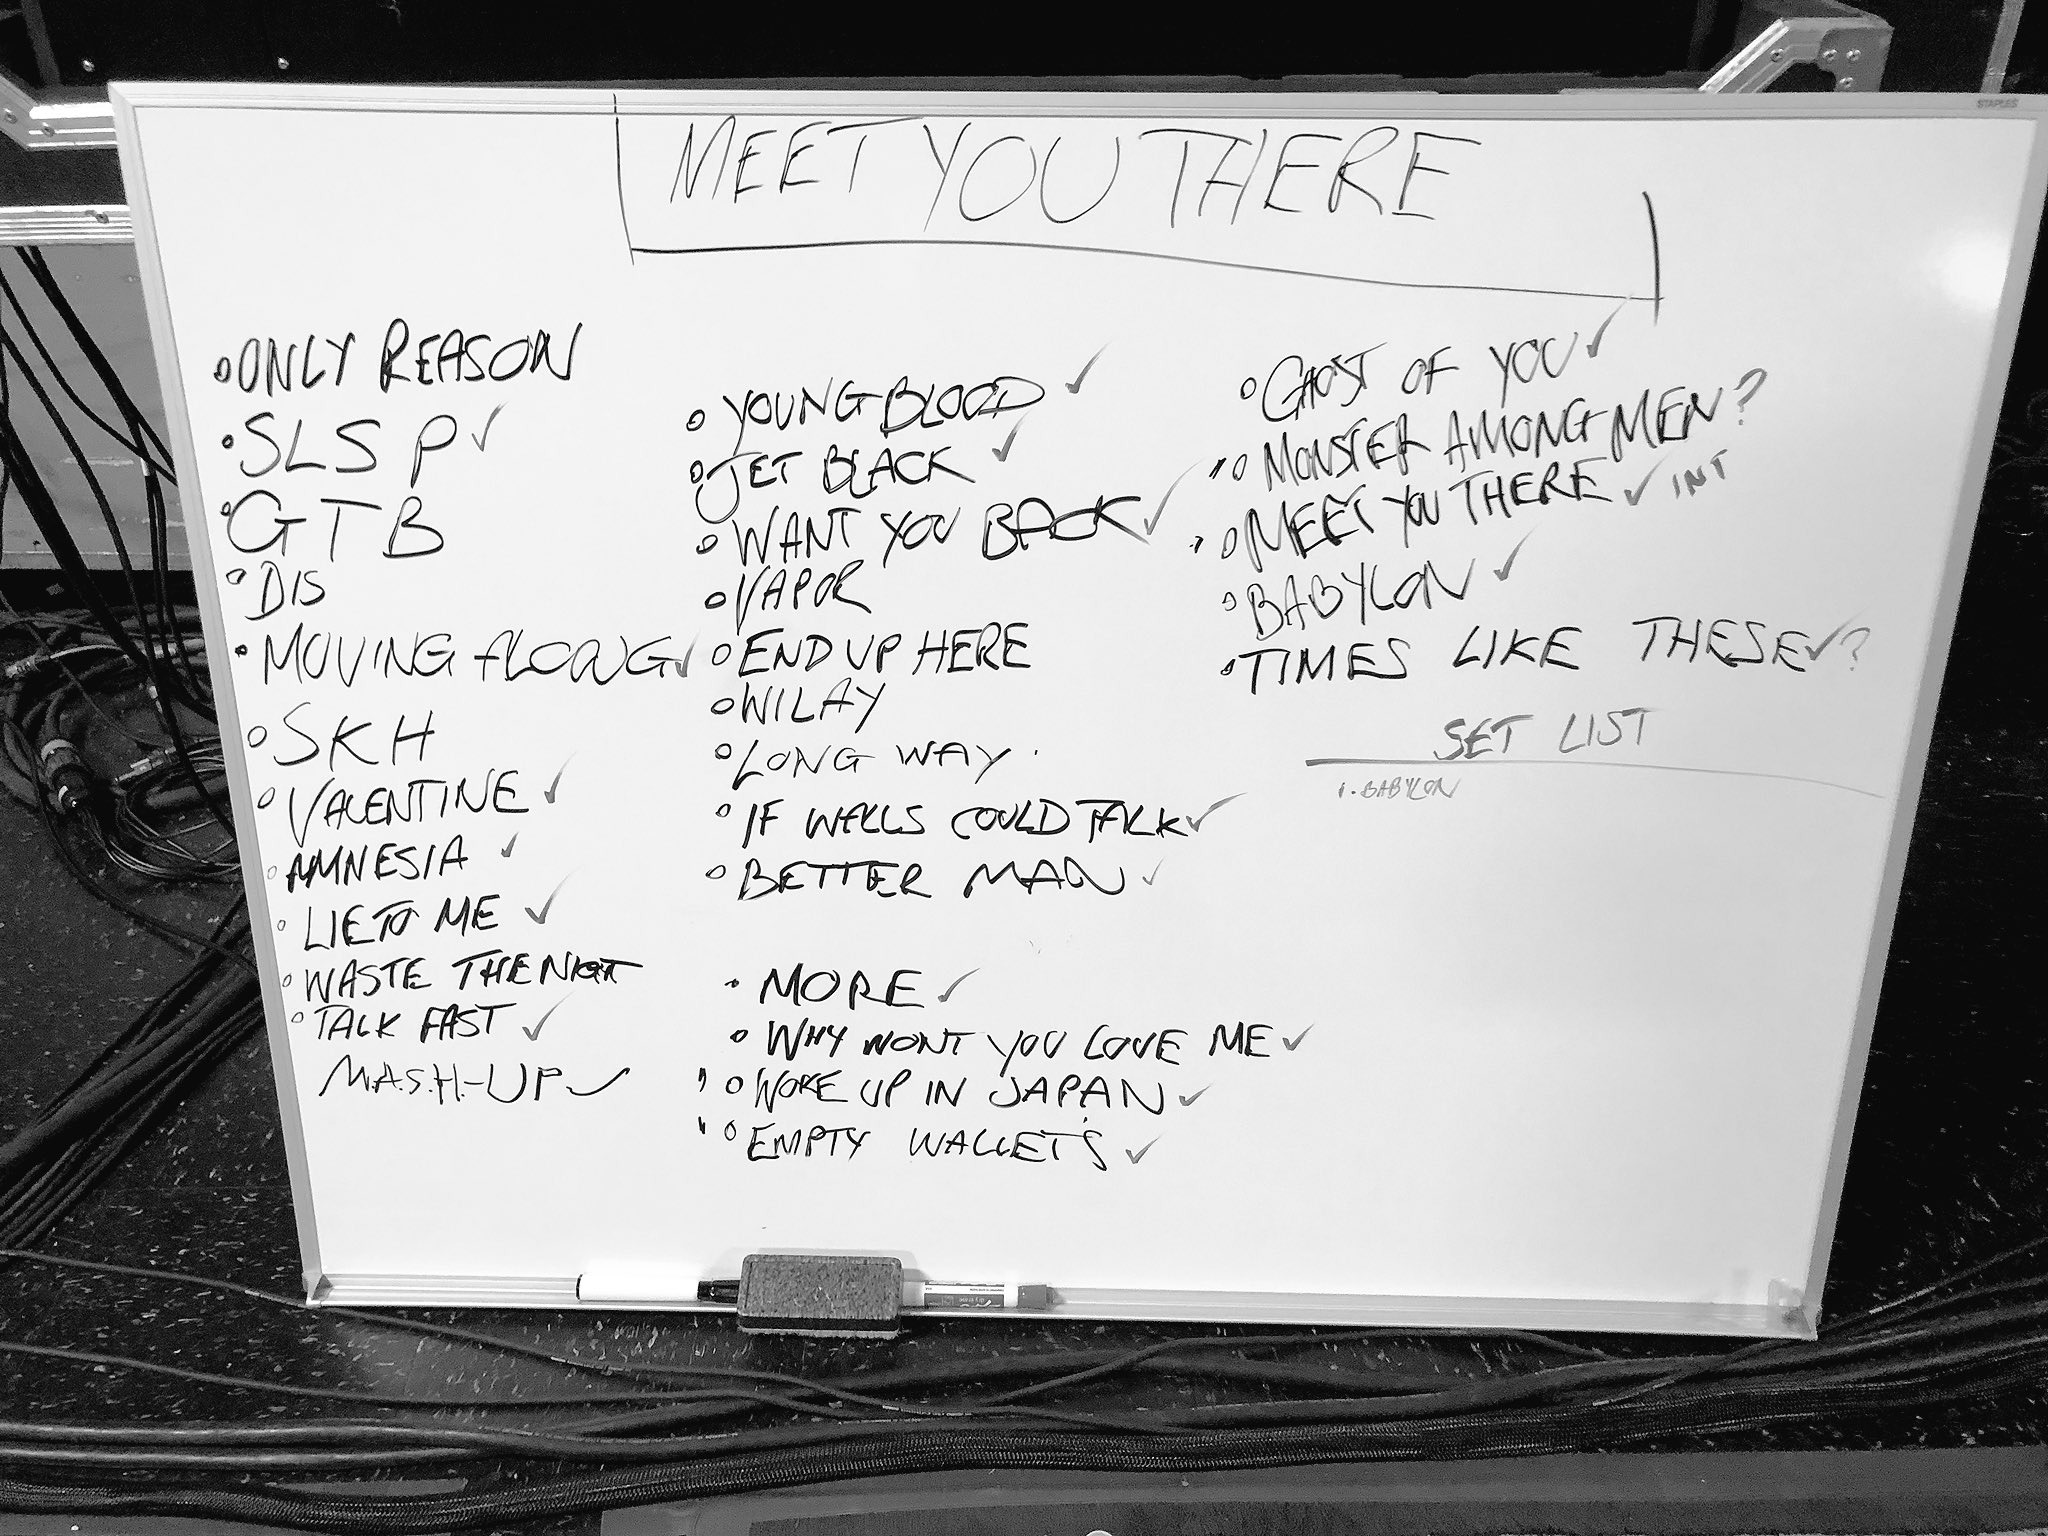 STAPLES
MEET YOU THERE
ONLY REASON
SLSP ✓
GTB
DIS
MOVING ALONG ✓
SKH
VALENTINE ✓
AMNESIA ✓
LIE TO ME ✓
WASTE THE NIGHT
TALK FAST ✓
M.A.S.H-UP ✓
YOUNGBLOOD ✓
JET BLACK ✓
WANT YOU BACK ✓
VAPOR
END UP HERE
WILAY
LONG WAY
IF WALLS COULD TALK ✓
BETTER MAN ✓
MORE ✓
WHY WONT YOU LOVE ME ✓
WOKE UP IN JAPAN ✓
EMPTY WALLETS ✓
GHOST OF YOU ✓
MONSTER AMONG MEN ?
MEET YOU THERE ✓ INT
BABYLON ✓
TIMES LIKE THESE ✓ ?
SET LIST
1. BABYLON